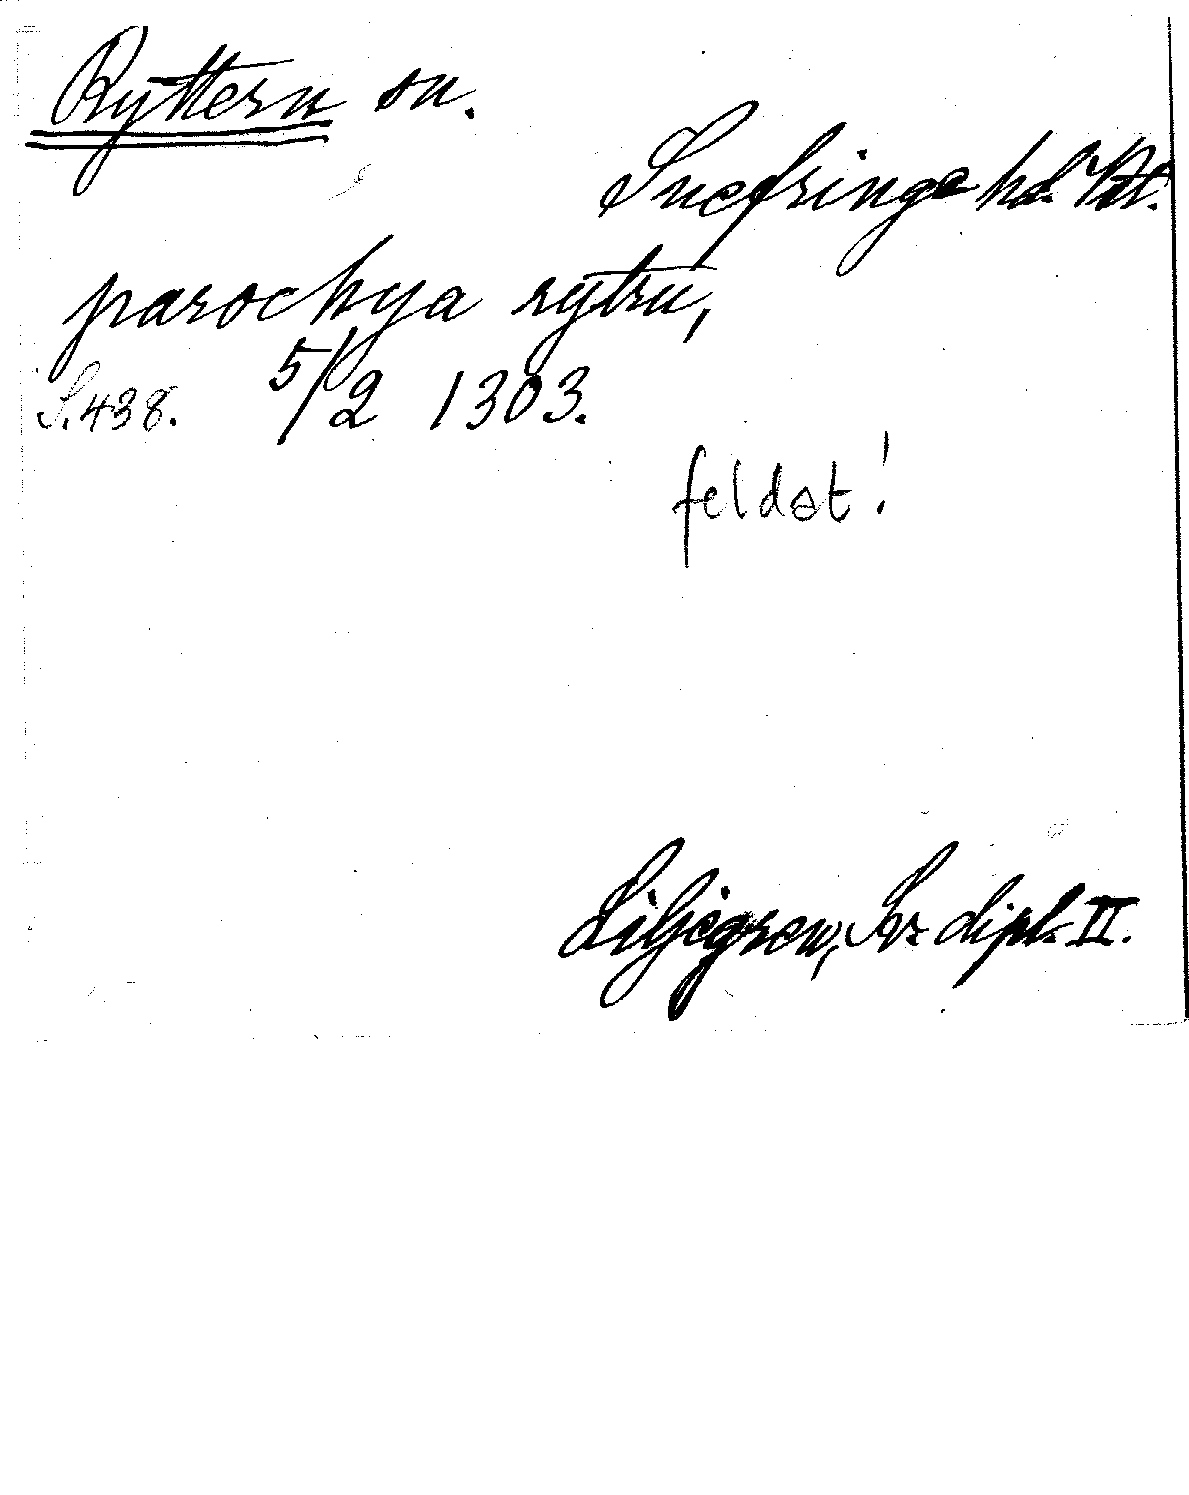 Ryttern sn.
Snefringe hd. Vstm.
parochya rytru,
S. 438. 5/2 1303.
feldat!
Liljegren, Sv. dipl. II.